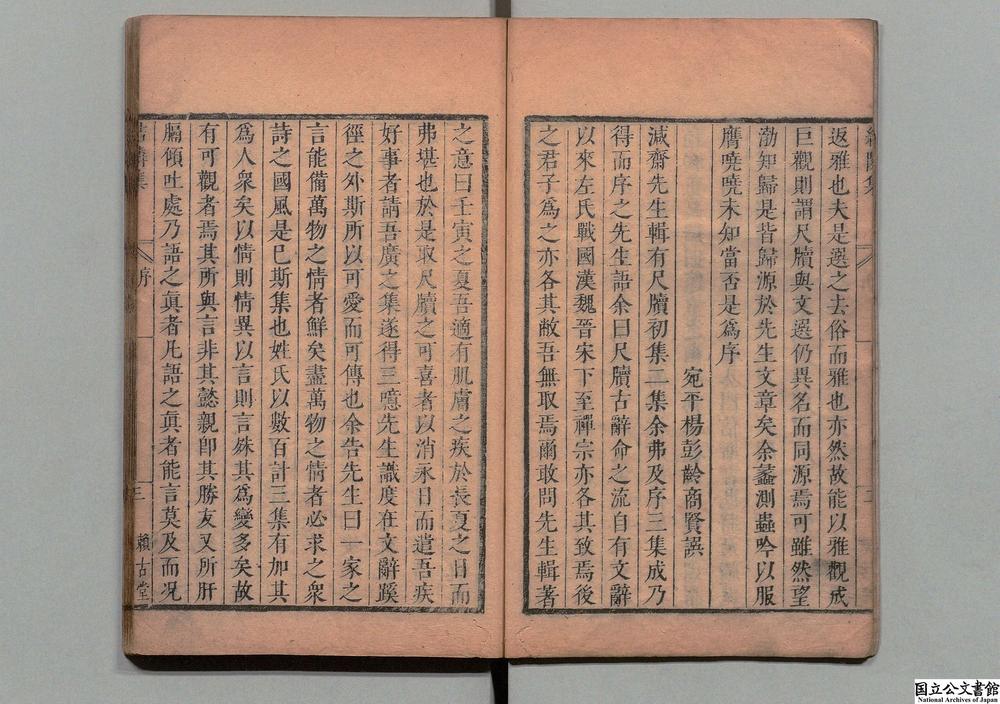 返雅也夫是選之去俗而雅也亦然故能以雅觀成
巨觀則謂尺牘與文選仍異名而同源焉可雖然望
渤知歸是皆歸源於先生文章矣余蠡測蟲吟以服
膺嘵嘵未知當否是為序
宛平楊彭齡商賢譔
減齋先生輯有尺牘初集二集余弗及序三集成乃
得而序之先生語余曰尺牘古辭命之流自有文辭
以來左氏戰國漢魏晉宋下至禪宗亦各其致焉後
之君子為之亦各其敝吾無取焉爾敢問先生輯著
之意曰壬寅之夏吾適有肌膚之疾於長夏之日而
弗堪也於是取尺牘之可喜者以消永日而遣吾疾
好事者請吾廣之集遂得三噫先生識度在文辭蹊
徑之外斯所以可愛而可傳也余告先生曰一家之
言能備萬物之情者鮮矣盡萬物之情者必求之眾
詩之國風是已斯集也姓氏以數百計三集有加其
為人眾矣以情則情異以言則言殊其為變多矣故
有可觀者焉其所與言非其懿親卽其勝友又所肝
膈傾吐處乃語之眞者凡語之眞者能言莫及而况
序
三
賴古堂
国立公文書館
National Archives of Japan